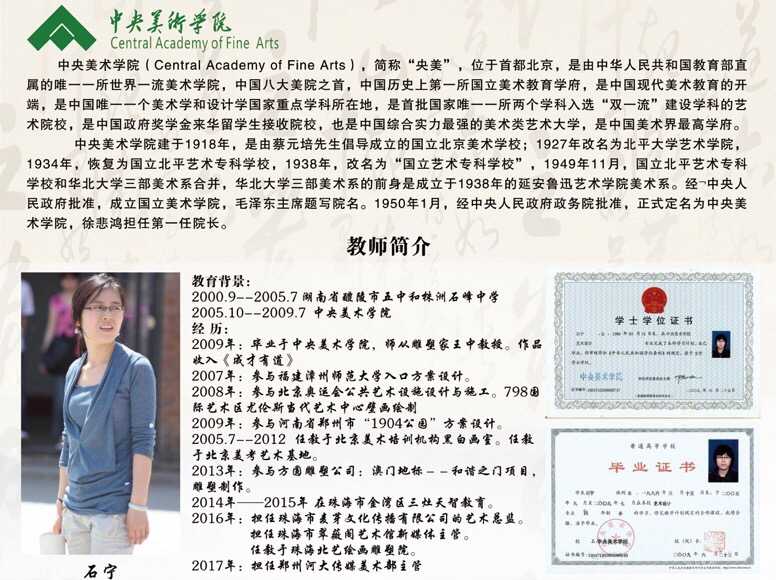 中央美術学院
Central Academy of Fine Arts
中央美术学院（Central Academy of Fine Arts），简称“央美”，位于首都北京，是由中华人民共和国教育部直
属的唯一一所世界一流美术学院，中国八大美院之首，中国历史上第一所国立美术教育学府，是中国现代美术教育的开
端，是中国唯一一个美术学和设计学国家重点学科所在地，是首批国家唯一一所两个学科入选“双一流”建设学科的艺
术院校，是中国政府奖学金来华留学生接收院校，也是中国综合实力最强的美术类艺术大学，是中国美术界最高学府。
中央美术学院建于1918年，是由蔡元培先生倡导成立的国立北京美术学校；1927年改名为北平大学艺术学院，
1934年，恢复为国立北平艺术专科学校，1938年，改名为“国立艺术专科学校”，1949年11月，国立北平艺术专科
学校和华北大学三部美术系合并，华北大学三部美术系的前身是成立于1938年的延安鲁迅艺术学院美术系。经中央人
民政府批准，成立国立美术学院，毛泽东主席题写院名。1950年1月，经中央人民政府政务院批准，正式定名为中央美
术学院，徐悲鸿担任第一任院长。
教师简介
教育背景：
2000.9--2005.7 湖南省醴陵市五中和株洲石峰中学
2005.10--2009.7 中央美术学院
经 历：
2009年：毕业于中央美术学院，师从雕塑家王中教授。作品
收入《成才有道》
2007年：参与福建漳州师范大学入口方案设计。
2008年：参与北京奥运会公共艺术设施设计与施工。798国
际艺术区尤伦斯当代艺术中心壁画绘制
2009年：参与河南省郑州市“1904公园”方案设计。
2005.7--2012 任教于北京美术培训机构黑白画室。任教
于北京美考艺术基地。
2013年：参与方圆雕塑公司：澳门地标--和谐之门项目，
雕塑制作。
2014年——2015年 在珠海市金湾区三灶天智教育。
2016年：担任珠海市麦芽文化传播有限公司的艺术总监。
担任珠海市翠薇阁艺术馆新媒体主管。
任教于珠海北艺绘画雕塑院。
2017年：担任郑州河大传媒美术部主管
石宁
学士学位证书
中央美术学院
普通高等学校
毕业证书
中央美术学院